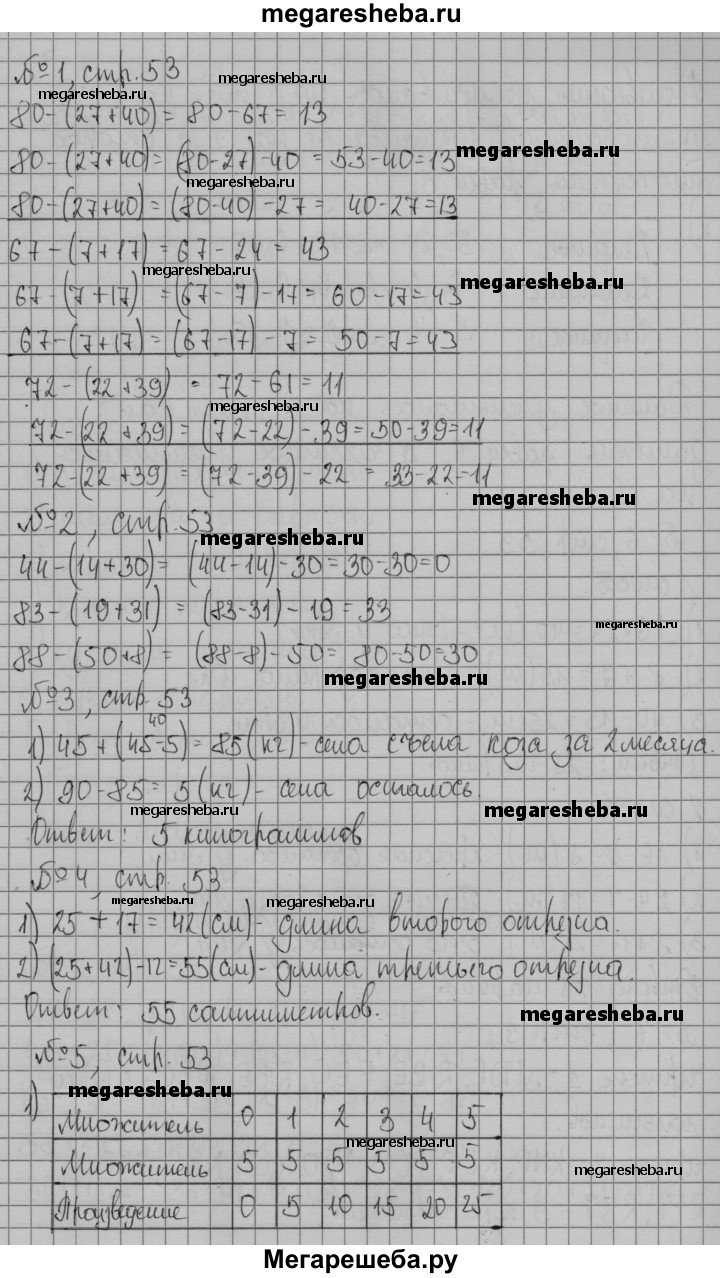 megaresheba.ru
№1, стр. 53
megaresheba.ru
megaresheba.ru
80-(27+40) = 80-67 = 13
80-(27+40) = (80-27)-40 = 53-40=13
megaresheba.ru
megaresheba.ru
80-(27+40) = (80-40)-27 = 40-27=13
67-(7+17) = 67-24 = 43
megaresheba.ru
67-(7+17) = (67-7)-17 = 60-17=43
megaresheba.ru
67-(7+17) = (67-17)-7 = 50-7=43
72-(22+39) = 72-61=11
megaresheba.ru
72-(22+39) = (72-22)-39=50-39=11
72-(22+39) = (72-39)-22 = 33-22=11
megaresheba.ru
№2, стр. 53
megaresheba.ru
44-(14+30) = (44-14)-30=30-30=0
83-(19+31) = (83-31)-19=33
megaresheba.ru
88-(50+8) = (88-8)-50= 80-50=30
megaresheba.ru
№3, стр. 53
40
1) 45+(45-5)=85(кг)-сена съела коза за 2 месяца.
2) 90-85=5(кг)-сена осталось.
megaresheba.ru
megaresheba.ru
Ответ: 5 килограммов
№4, стр. 53
megaresheba.ru
megaresheba.ru
1) 25+17=42(см)-длина второго отрезка.
2) (25+42)-12=55(см)-длина третьего отрезка.
Ответ: 55 сантиметров.
megaresheba.ru
№5, стр. 53
megaresheba.ru
1)
Множитель 0 1 2 3 4 5
megaresheba.ru
Множитель 5 5 5 5 5 5
megaresheba.ru
Произведение 0 5 10 15 20 25
Мегарешеба.ру